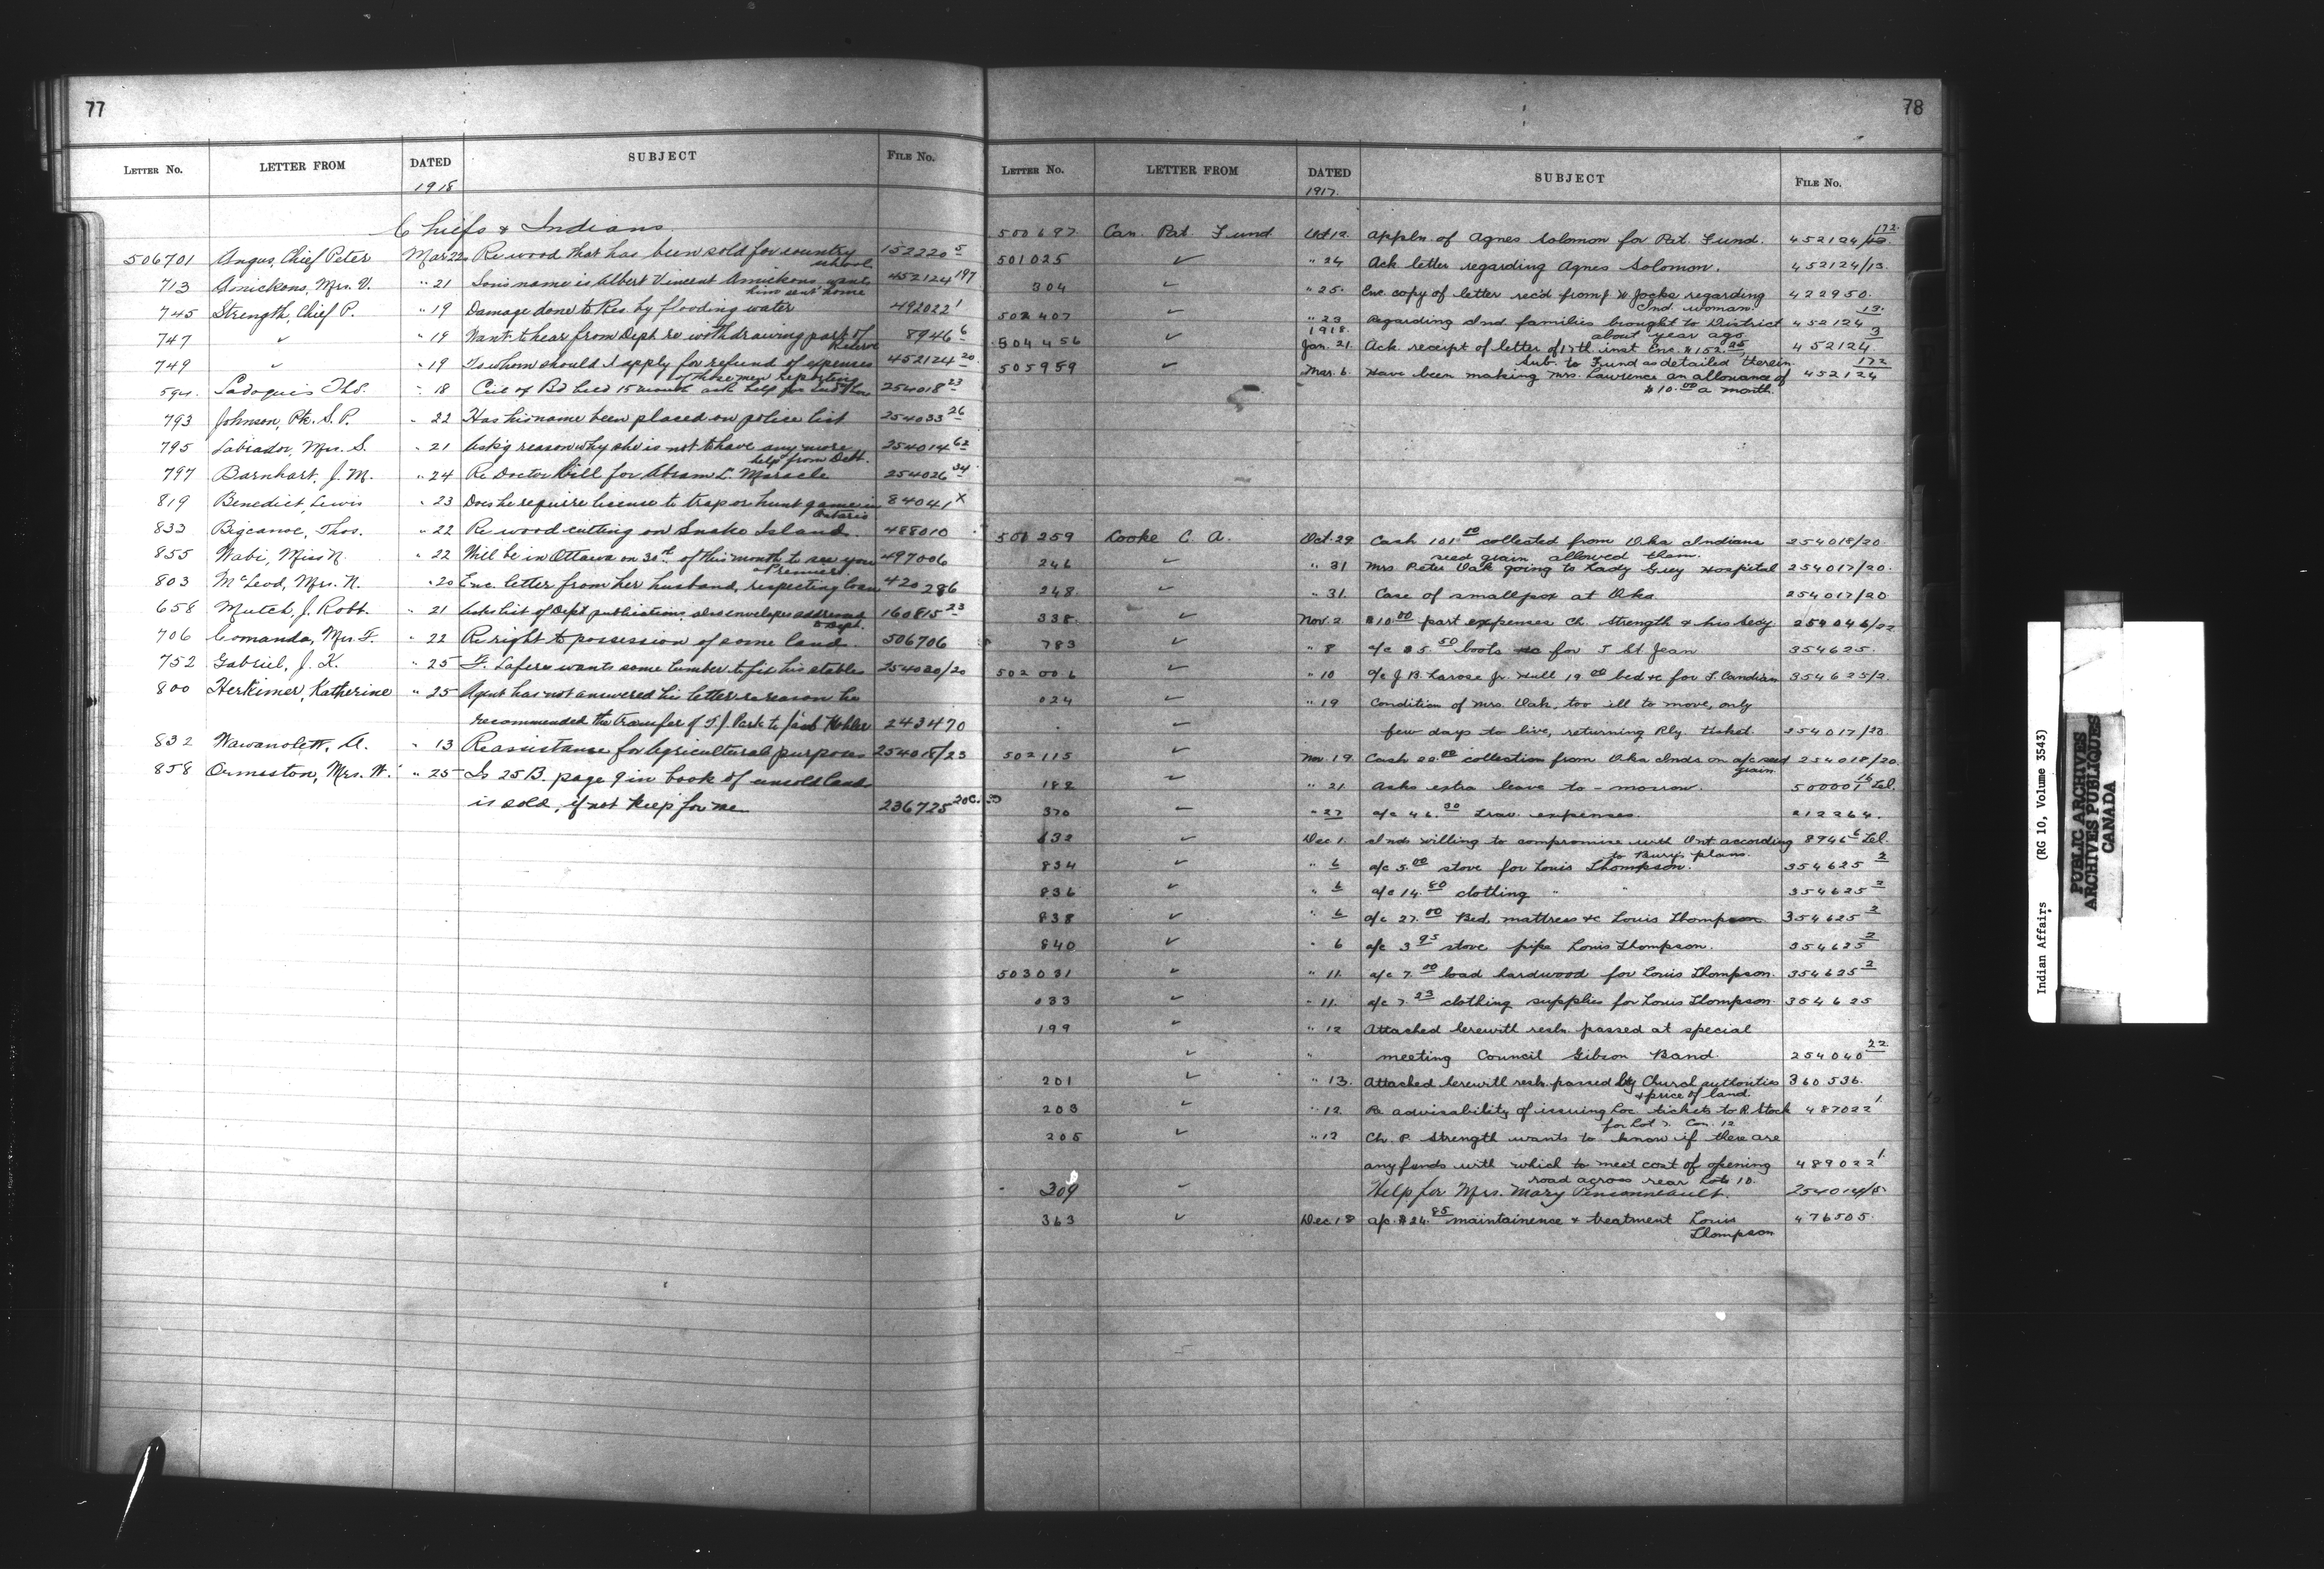 77
LETTER No. LETTER FROM DATED SUBJECT FILE No.
1918
Chiefs & Indians
506701 Angus, Chief Peter Mar 22 Re wood that has been sold for country school 152220 5
713 Amickons, Mrs. V. " 21 Son's name is Albert Vincent Amickons, wants him sent home 452124 197
745 Strength, Chief P. " 19 Damage done to Res by flooding water 492022 1
747 ✓ " 19 Want to hear from Dept re withdrawing part of Reserve 8946 6
749 " " 19 To whom should I apply for refund of expenses of those men reporting 452124 20
594 Ladoquis Thos. " 18 help for 254018 23
793 Johnson, Pte. S. P. " 22 Has his name been placed on police list 254033 26
795 Labrador, Mrs. S. " 21 Ask'g reason why she is not to have any more help from Dept. 254014 62
797 Barnhart, J. M. " 24 Re Doctor bill for Abram L. Maracle 254026 34
819 Benedict, Lewis " 23 Does he require license to trap or hunt game in Ontario 84041 X
833 Bigcanoe, Thos. " 22 Re wood cutting on Snake Island. 488010
855 Wabi, Miss N. " 22 Will be in Ottawa on 30th of this month to see you & Premier 497006
803 McLeod, Mrs. N. " 20 Enc letter from her husband, respecting loan 420286
658 Mutch, J. Robt. " 21 Asks list of Dept publications, also envelopes addressed to Dept. 160815 23
706 Comanda, Mrs. F. " 22 Re right to possession of some land. 506706
752 Gabriel, J. K. " 25 F. Lafere wants some lumber to fix his stables 254020/20
800 Herkimer, Katherine " 25 Agent has not answered his letter re reason he
recommended the transfer of T. J. Park to 243470
832 Wawanolett, A. " 13 Re assistance for Agricultural purposes 254018/23
858 Ormiston, Mrs. W. " 25 Is 25 B. page 9 in book of unsold lands
is sold, if not keep for me 236725 20C.
78
LETTER No. LETTER FROM DATED SUBJECT FILE No.
1917.
500697 Can. Pat. Fund Oct 12. Appln. of Agnes Solomon for Pat. Fund. 452124/172
501025 ✓ " 24 Ack letter regarding Agnes Solomon. 452124/13.
304 ✓ " 25. Enc. copy of letter rec'd from J. W. Jocks regarding Ind. woman. 422950.
502407 ✓ " 23 Regarding Ind. families brought to District about year ago 452124 13.
1918.
504456 ✓ Jan. 21. Ack. receipt of letter of 17th. inst Enc. $152.25 sub. to Fund as detailed therein. 452124 3
505959 ✓ Mar. 6. Have been making Mrs. Lawrence an allowance of $10.00 a month. 452124 172
501259 Cooke C. A. Oct. 29 Cash 101.10 collected from Oka Indians seed grain allowed them. 254018/20.
246 ✓ " 31 Mrs Peter Oak going to Lady Grey Hospital 254017/20.
248. ✓ " 31. Case of smallpox at Oka. 254017/20
338. ✓ Nov. 2. $10.00 part expenses Ch. Strength & his Secy 254046/22
783 ✓ " 8 a/c $5.50 boots &c for J St Jean 354625.
502006 ✓ " 10 a/c J. B. Larose Jr. Hull 19.00 bed &c for L. Candian 354625/2.
024 ✓ " 19 Condition of Mrs. Oak, too ill to move, only
✓ few days to live, returning Rly ticket. 254017/20.
502115 ✓ Nov. 19. Cash 22.00 collection from Oka Inds. on a/c seed grain. 254018/20.
182 ✓ " 21. Asks extra leave to-morrow. 500001 16 Lel.
370 ✓ " 27 a/c 46.30 Trav. expenses. 212264.
632 ✓ Dec 1. Inds willing to compromise with Ont according to Bury's plans. 8946 6 Lel.
834 ✓ " 6 a/c 5.00 stove for Louis Thompson. 354625 2
836 ✓ " 6 a/c 14.80 clothing " " 354625 2
838 ✓ " 6 a/c 27.00 Bed, mattress &c Louis Thompson 354625 2
840 ✓ " 6 a/c 3.95 stove pipe Louis Thompson. 354625 2
503031 ✓ " 11. a/c 7.00 load hardwood for Louis Thompson. 354625 2
033 ✓ " 11. a/c 7.23 clothing supplies for Louis Thompson 354625
199 ✓ " 12 Attached herewith resln. passed at special
✓ " meeting Council Gibson Band. 254040 22.
201 ✓ " 13. Attached herewith resln. passed by Church authorities & price of land. 360536.
203 ✓ " 12. Re advisability of issuing Loc. tickets to R Stock for Lot 7. Con. 12 487022 1.
205 ✓ " 12 Ch. P. Strength wants to know if there are
any funds with which to meet cost of opening road across rear Lots 10. 489022 1.
309 ✓ Help for Mrs. Mary Pinsonneault. 254014/15
363 ✓ Dec. 18 a/c $24.85 maintainence & treatment Louis Thompson 476505.
Indian Affairs (RG 10, Volume 3543)
PUBLIC ARCHIVES
ARCHIVES PUBLIQUES
CANADA